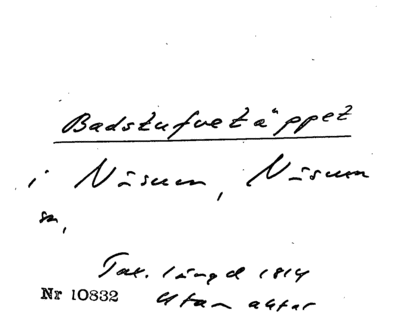 Badstufvetäppet
i Näsum, Näsum
sn,
Tax. längd 1814
Nr 10832 utan aktor